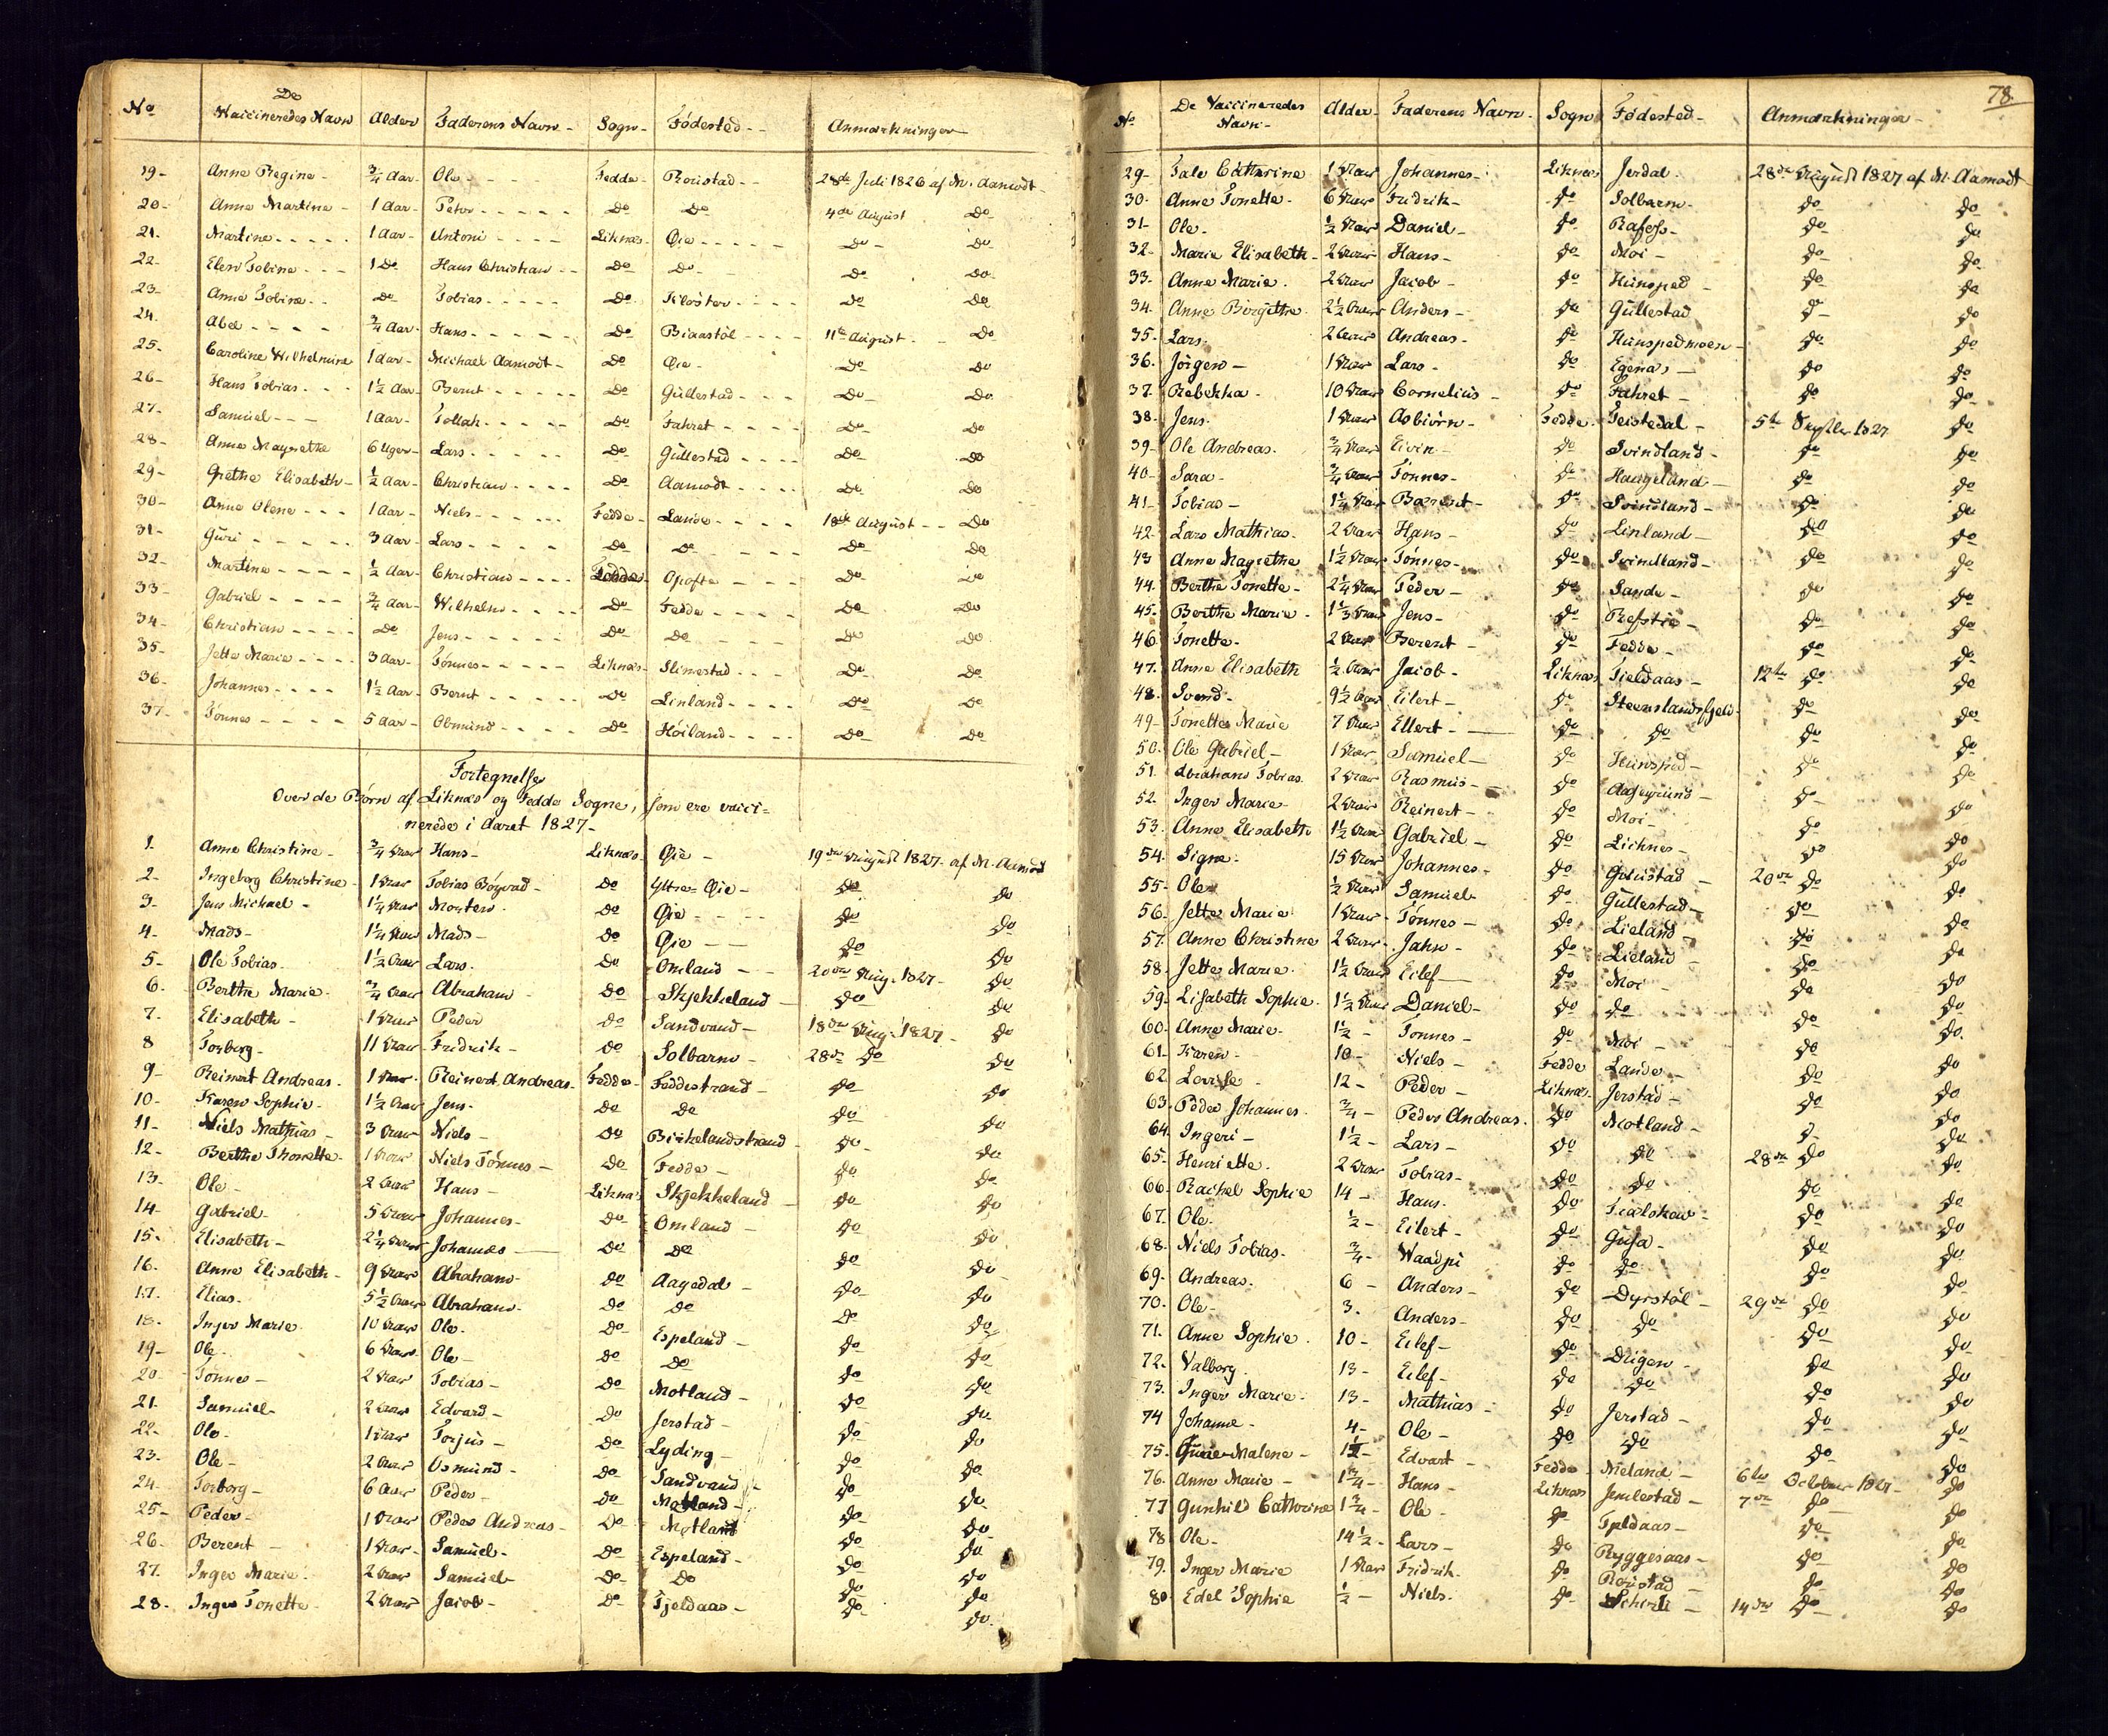 No | De Vaccineredes Navn | Alder | Faderens Navn - | Sogn - | Fødested - - | Anmærkninger
19 - | Anne Regine - | ¾ Aar - | Ole - - - - | Fedde - | Rørstad - - | 28de Juli 1826 af M. Aamodt -
20 - | Anne Martine - | 1 Aar - | Peter - - - - - | Do | Do | 4de August Do
21 - | Martine - - - - - | 1 Aar - | Antoni - - - - | Liknæs - | Øie - - - - - | Do - Do
22 - | Elen Tobine - - - | 1 Do | Hans Christian - - | Do | Do - | Do Do
23 - | Anne Tobine - - | Do | Tobias - - - - - | Do | Kloster - - - - | Do Do
24 - | Abel - - - - | ¾ Aar - | Hans - - - - - | Do | Biaastöl - - - - | 11te August - Do
25 - | Caroline Wilhelmine | 1 Aar - | Michael Aamodt - | Do | Øie - | Do Do
26 - | Hans Tobias - - - | 1½ Aar - | Bernt - - - - - | Do | Gullestad - - - | Do Do
27 - | Samuel - - - | 1 Aar - | Tollak - - - - - | Do | Fahret - - - - | Do Do
28 - | Anne Magrethe | 6 Uger - | Lars - - - - - | Do | Gullestad - - - - | Do Do
29 - | Grethe Elisabeth - | ½ Aar - | Christian - - - - | Do | Aamodt - - - - | Do Do
30 - | Anne Olene - - - | 1 Aar - | Niels - - - - - - | Fedde - | Lande - - - - | 18de August - - Do
31 - | Guri - - - - - - | 3 Aar - | Lars - - - - - | Do | Do - - - - | Do Do
32 - | Martine - - - - - | ½ Aar - | Christian - - - - | Fedde - | Opofte - - - - | Do Do
33 - | Gabriel - - - - | ¾ Aar - | Wilhelm - - - - | Do | Fedde - - - - | Do Do
34 - | Christian - - - - | Do | Jens - - - - - - | Do | Do - - - - - | Do Do
35 - | Jette Marie - - - - | 3 Aar - | Tönnes - - - - - | Liknæs - | Slimestad - - - | Do Do
36 - | Johannes - - - - | 1½ Aar - | Bernt - - - - - - | Do | Linland - - - - | Do Do
37 - | Tönnes - - - - | 5 Aar - | Osmund - - - - - | Do | Höiland - - - - | Do Do
Fortegnelse
Over de Børn af Liknæs og Fedde Sogne, som ere vacci=
nerede i Aaret 1827 -
1 - | Anne Christine - | ¾ Aar | Hans - | Liknæs - | Øie - | 19de August 1827 - af M. Aamodt
2 - | Ingeborg Christine - | 1 Aar | Tobias Böyvad - | do | Yttre= Øie - | do do
3 - | Jens Michael - | 1¼ Aar | Morten - | do | Øie - - - - | do do
4 - | Mads - | 1¼ Aar | Mads - | do | Øie - - | do do
5 - | Ole Tobias - | 1½ Aar | Lars - | do | Omland - - | 20de Aug. 1827 - do
6 - | Berthe Marie - | ¾ Aar | Abraham - | do | Skjekkeland - | do do
7 - | Elisabeth - | 1 Aar | Peder | do | Sandvand - | 18de Aug. 1827 - do
8 | Torborg - | 11 Aar | Fredrik - | do | Solbarm - | 28de do do
9 - | Reinert Andreas - | 1 Aar - | Reinert Andreas - | Fedde - | Feddestrand - | do do
10 - | Karen Sophie - | 1½ Aar | Jens - | do | do | do do
11 - | Niels Mathias - | 3 Aar | Niels - | do | Birkelandstrand | do do
12 - | Berthe Thonette - | 1 Aar | Niels Tönnes - | do | Fedde - | do do
13 - | Ole - | 2 Aar | Hans - | Liknæs | Skjekkeland - | do do
14 - | Gabriel - | 5 Aar | Johannes - | do | Omland - | do do
15 - | Elisabeth - | 2¼ Aar | Johannes - | do | do | do do
16 - | Anne Elisabeth - | 9 Aar | Abraham - | do | Aagedal - | do do
17 - | Elias - | 5½ Aar | Abraham - | do | do | do do
18 - | Inger Marie | 10 Aar | Ole - | do | Espeland - | do do
19 - | Ole - | 6 Aar | Ole - | do | do | do do
20 - | Tönnes - | 2 Aar | Tobias - | do | Motland - | do do
21 - | Samuel - | 2 Aar | Edvard - | do | Jerstad - | do do
22 - | Ole - | 1 Aar | Torjus - | do | Lyding - | do do
23 - | Ole - | 2 Aar | Osmund - | do | Sandvand - | do do
24 - | Torborg - | 6 Aar | Peder - | do | Motland - | do do
25 - | Peder - | 1 Aar | Peder Andreas - | do | Motland | do do
26 - | Berent - | 1 Aar - | Samuel - | do | Espeland - | do do
27 - | Inger Marie - | 2 Aar | Samuel - | do | do | do do
28 - | Inger Tonette - | 2 Aar | Jacob - | do | Fjeldaas - | do do
78.
No | De Vaccineredes Navn - | Alder - | Faderens Navn - | Sogn | Fødested - | Anmærkninger -
29 - | Tale Cathrine | 1 Aar | Johannes - | Liknæs | Jerdal - | 28de August 1827 af M. Aamodt
30 - | Anne Tonette - | 6 Aar | Fredrik - | do | Solbarm - | do do
31 - | Ole - | ½ Aar | Daniel - | do | Rafoss - | do do
32 - | Marie Elisabeth - | 2 Aar | Hans - | do | Moi - | do do
33 - | Anne Marie - | 2 Aar | Jacob - | do | Hunsped - | do do
34 - | Anne Birgithe - | 2½ Aar | Anders - | do | Gullestad | do do
35 - | Lars - | 2 Aar | Andreas - | do | Hunspedmoen - | do do
36 - | Jörgen - | 1 Aar | Lars - | do | Egenæs - | do do
37 - | Rebekka - | 10 Aar | Cornelius - | do | Fahret - | do do
38 - | Jens - | 1 Aar | Asbiörn - | Fedde - | Teistedal - | 5te Septbr 1827 do
39 - | Ole Andreas - | ¾ Aar | Eivin - | do | Svindland - | do do
40 - | Sara - | ¾ Aar | Tönnes - | do | Haugeland - | do do
41 - | Tobias - | 1¼ Aar | Berent - | do | Svindland - | do do
42 - | Lars Mathias - | 2 Aar | Hans - | do | Linland - | do do
43 | Anne Magrethe | 1½ Aar | Tönnes - | do | Svindland - | do do
44 - | Berthe Tonette - | 2¼ Aar | Peder - | do | Sande - | do do
45 - | Berthe Marie - | 1⅓ Aar | Jens - | do | Refstie - | do do
46 - | Tonette - | 2 Aar | Berent - | do | Fedde - | do do
47 - | Anne Elisabeth | ½ Aar | Jacob - | Liknæs | Fieldaas - | 12te do do
48 - | Svend - | 9½ Aar | Eilert - | do | Steenslandsfjeld - | do do
49 - | Tonette Marie | 7 Aar | Ellert - | do | do | do do
50 - | Ole Gabriel - | 1 Aar | Samuel - | do | Hunsped - | do do
51 - | Abraham Tobias - | 2 Aar | Rasmus - | do | | do do
52 - | Inger Marie - | 2 Aar | Reinert - | do | Moi - | do do
53 - | Anne Elisabeth | 1½ Aar | Gabriel - | do | Lichnes - | do do
54 - | Signe - | 15 Aar | Johannes - | do | | 20de do do
55 - | Ole | ½ Aar | Samuel - | do | Gullestad - | do do
56 - | Jette Marie | 1 Aar | Tönnes - | do | Lieland - | do do
57 - | Anne Christine | 2 Aar | Jahn - | do | Lieland - | do do
58 - | Jette Marie - | 1½ Aar | Eilef - | do | Moi - | do do
59 - | Lisabeth Sophie - | 1½ Aar | Daniel - | do | do | do do
60 - | Anne Marie - | 1½ - | Tönnes - | do | Moi - | do do
61 - | Karen - | 10 - | Niels - | Fedde | Lande - | do do
62 | Lovise - | 12 - | Peder - | Liknæs - | Jerstad - | do do
63 - | Peder Johannes - | ¾ - | Peder Andreas - | do | Motland - | do do
64 - | Ingeri - | 1½ - | Lars - | do | do | 28de do do
65 - | Henriette - | 2 Aar | Tobias - | do | do | do do
66 - | Rachel Sophie | 14 - | Hans - | do | | do do
67 - | Ole - | ½ - | Eilert - | do | Gusa - | do do
68 - | Niels Tobias - | ¾ - | | do | do | do do
69 - | Andreas - | 6 - | Anders - | do | Dyrstöl - | 29de do do
70 - | Ole - | 3 - | Anders - | do | do | do do
71 - | Anne Sophie - | 10 - | Eilef - | do | | do do
72 - | Valborg - | 13 - | Eilef - | do | do | do do
73 - | Inger Marie - | 13 - | Mathias - | do | Jerstad - | do do
74 | Johanne - | 4 - | Ole - | do | do | do do
75 - | Malene - | | Edvart - | Fedde - | Nieland - | 6te October 1827 - do
76 - | Anne Marie - | 1¾ - | Hans - | Liknæs | Jemlestad - | 7de do do
77 | Gunhild Cathrine | 1¾ - | Ole - | do | Fjeldaas - | do do
78 | Ole - | 14½ - | Lars - | do | Ryggesaas - | do do
79 - | Inger Marie | 1 Aar | Fredrik - | do | Rörstad - | do do
80 | Edel Sophie | ½ - | Niels - | do | | 14de do do